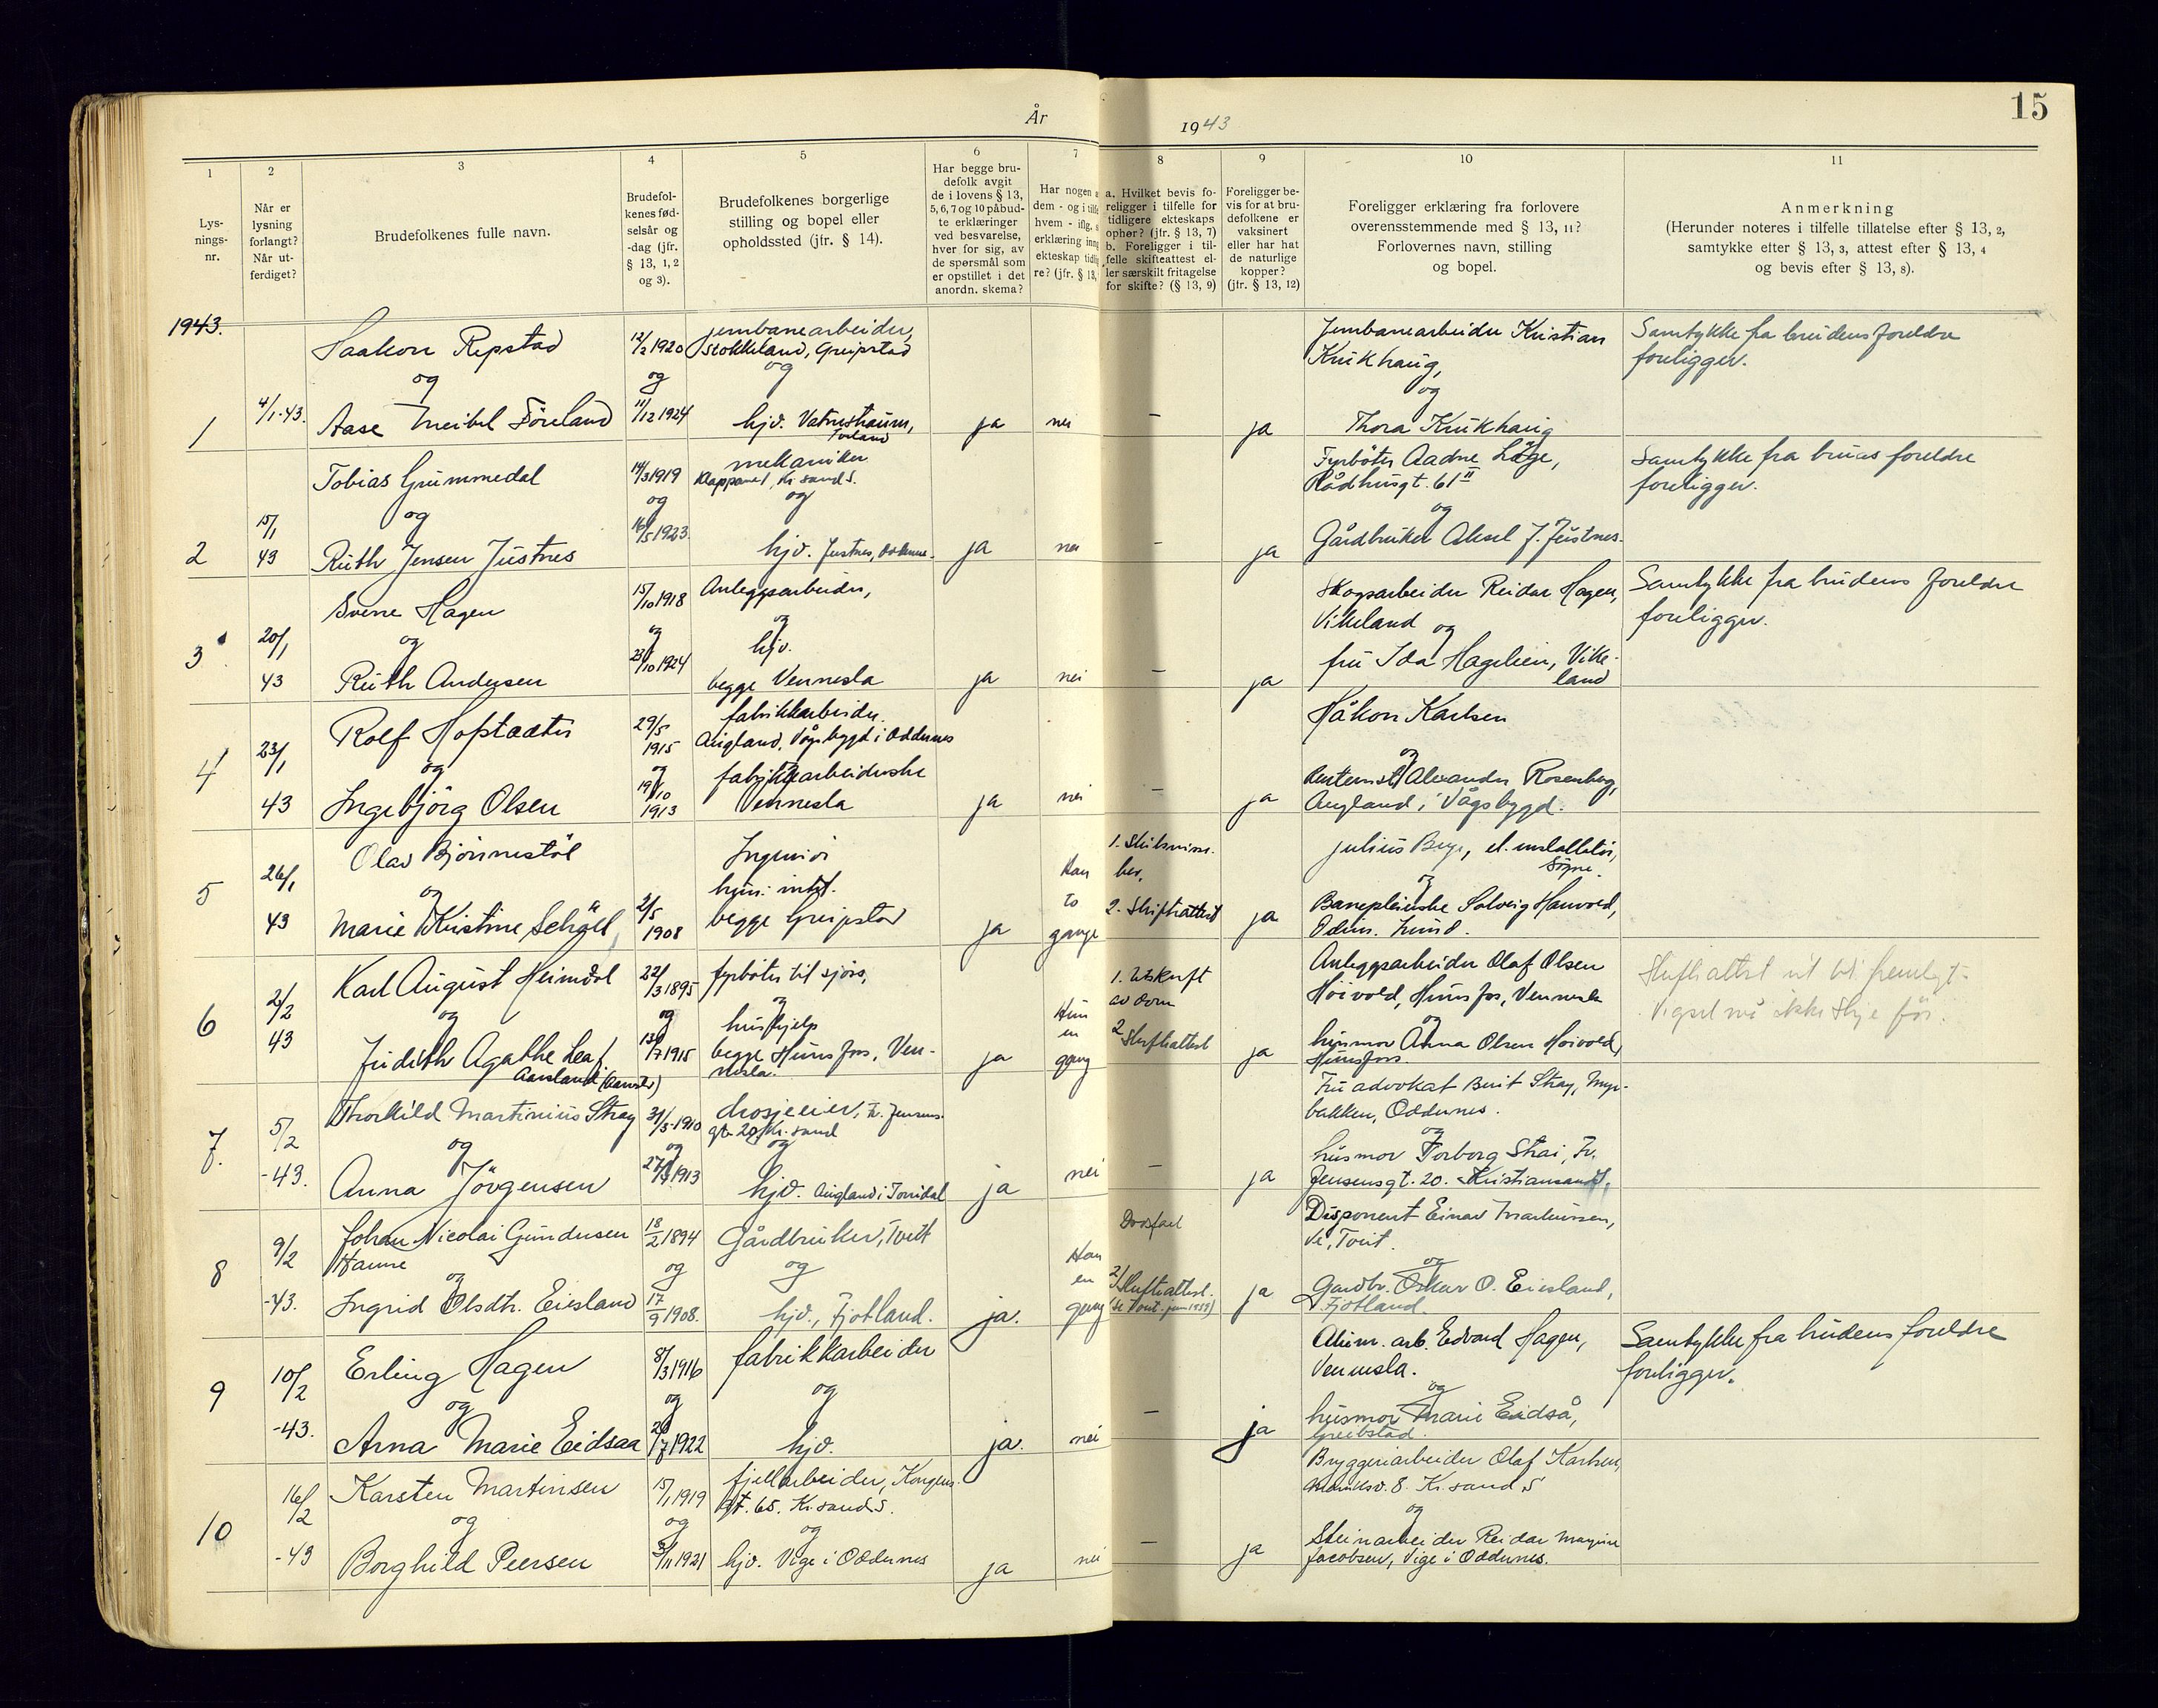 År
1943
15
1
2
3
4
5
6
7
8
9
10
11
Lys-
nings-
nr.
Når er
lysning
forlangt?
Når ut-
ferdiget?
Brudefolkenes fulle navn.
Brudefol-
kenes fød-
selsår og
-dag (jfr.
§ 13, 1, 2
og 3).
Brudefolkenes borgerlige
stilling og bopel eller
opholdssted (jfr. § 14).
Har begge bru-
defolk avgit
de i lovens § 13,
5, 6, 7 og 10 påbud-
te erklæringer
ved besvarelse,
hver for sig, av
de spørsmål som
er opstillet i det
anordn. skema?
Har nogen
dem - og i
hvem - iflg.
erklæring
ekteskap
re? (jfr. § 13,
a. Hvilket bevis fo-
religger i tilfelle for
tidligere ekteskaps
ophør? (jfr. § 13, 7)
b. Foreligger i til-
felle skifteattest el-
ler særskilt fritagelse
for skifte? (§ 13, 9)
Foreligger be-
vis for at bru-
defolkene er
vaksinert
eller har hat
de naturlige
kopper?
(jfr. § 13, 12)
Foreligger erklæring fra forlovere
overensstemmende med § 13, 11?
Forlovernes navn, stilling
og bopel.
Anmerkning
(Herunder noteres i tilfelle tillatelse efter § 13, 2,
samtykke efter § 13, 3, attest efter § 13, 4
og bevis efter § 13, 8).
1943.
1
4/1-43.
Haakon Repstad
og
Aase Meibel Föreland
12/2 1920
og
11/12 1924
jernbanearbeider,
Stokkeland, Greipstad
og
hjv. Vatnestraum,
ja
nei
–
ja
Jernbanearbeider Kristian
Krukhaug,
og
Thora Krukhaug
Samtykke fra brudens foreldre
foreligger.
2
15/1
43
Tobias Grummedal
og
Ruth Jensen Justnes
14/3 1919
og
16/5 1923.
mekaniker
Kr. sand S.
og
hjv. Justnes, Oddernes.
ja
nei
–
ja
Fyrböter Aadne Löge,
Rådhusgt. 61 II
og
Gårdbruker Aksel J. Justnes.
Samtykke fra bruds foreldre
foreligger.
3
20/1
43
Sverre Hagen
og
Ruth Andersen
15/10 1918
og
23/10 1924
Anleggsarbeider,
og
hjv.
begge Vennesla
ja
nei
–
ja
Skogsarbeider Reidar Hagen,
Vikeland og
fru Ida Hagelien, Vike-
land
Samtykke fra brudens foreldre
foreligger.
4
23/1
43
Rolf Hofstadter
og
Ingebjörg Olsen
29/5
1915
og
19/10
1913
fabrikkarbeider.
Augland, Vågsbygd i Oddernes
fabrikkarbeiderske
Vennesla
ja
nei
–
ja
Håkon Karlsen
og
Alexander Rosenberg,
Augland i Vågsbygd.
5
26/1
43
Olav Bjönnestöl
og
Marie Kristine Schöll
2/5
1908
Ingeniör
begge Greipstad
ja
Han
to
gange
2. Skifteattest
ja
Julius Berge, el. installatör,
Sögne.
og
Solveig Hanvold,
6
2/2
43
Karl August Heimdal
og
Judith Agathe Leaf
Aarsland
22/3 1895
og
13/7 1915
fyrböter til sjös,
og
hushjelp
begge Hunsfos, Ven-
nesla.
ja
Hun
en
gang
1. Utskrift
av dom
2. Skifteattest
ja
Anleggsarbeider Olaf Olsen
Höivold, Hunsfos, Vennesla
og
husmor Anna Olsen Höivold,
Hunsfoss.
Skifteattest vil bli fremlagt.
Vigsel må ikke skje för.
7.
5/2
-43.
Thorkild Martinius Stray
og
Anna Jörgensen
31/5-1910
og
1913
drosjeeier, Fr. Jensens-
gt. 20, Kr.sand
og
hjv. Augland i Torridal
ja
nei
–
ja
Fru advokat Berit Stray, Myr-
bakken, Oddernes.
og
husmor Torborg Strai, Fr.
Jensensgt. 20. Kristiansand S.
8
9/2
-43.
Johan Nicolai Gundersen
Hamre
og
Ingrid Olsdtr. Eiesland
18/2 1894
og
17/9 1908.
Gårdbruker, Tveit
og
hjv., Fjotland.
ja.
Han
en
gang
Dödsfall
2/ Skifteattest.
ja
Disponent Einar Markussen,
Ve, Tveit.
og
Gardbr. Oskar O. Eiesland,
Fjotland.
9
10/2
-43.
Erling Hagen
og
Arna Marie Eidsaa
8/3 1916
og
20/7 1922
fabrikkarbeider
og
hjv.
ja.
nei
–
ja
Alum. arb. Edvard Hagen,
Vennesla.
og
husmor Marie Eidså,
Greibstad.
Samtykke fra brudens foreldre
foreligger.
10
16/2
-43
Karsten Martinsen
og
Borghild Peersen
15/1 1919
og
1921
fjellarbeider, Kongens-
gt. 65. Kr.sand S.
og
hjv. Vige i Oddernes
ja
nei
–
ja
Bryggeriarbeider Olaf Karlsen,
8. Kr. sand S
og
Steinarbeider Reidar Magnus
Jacobsen, Vige i Oddernes.